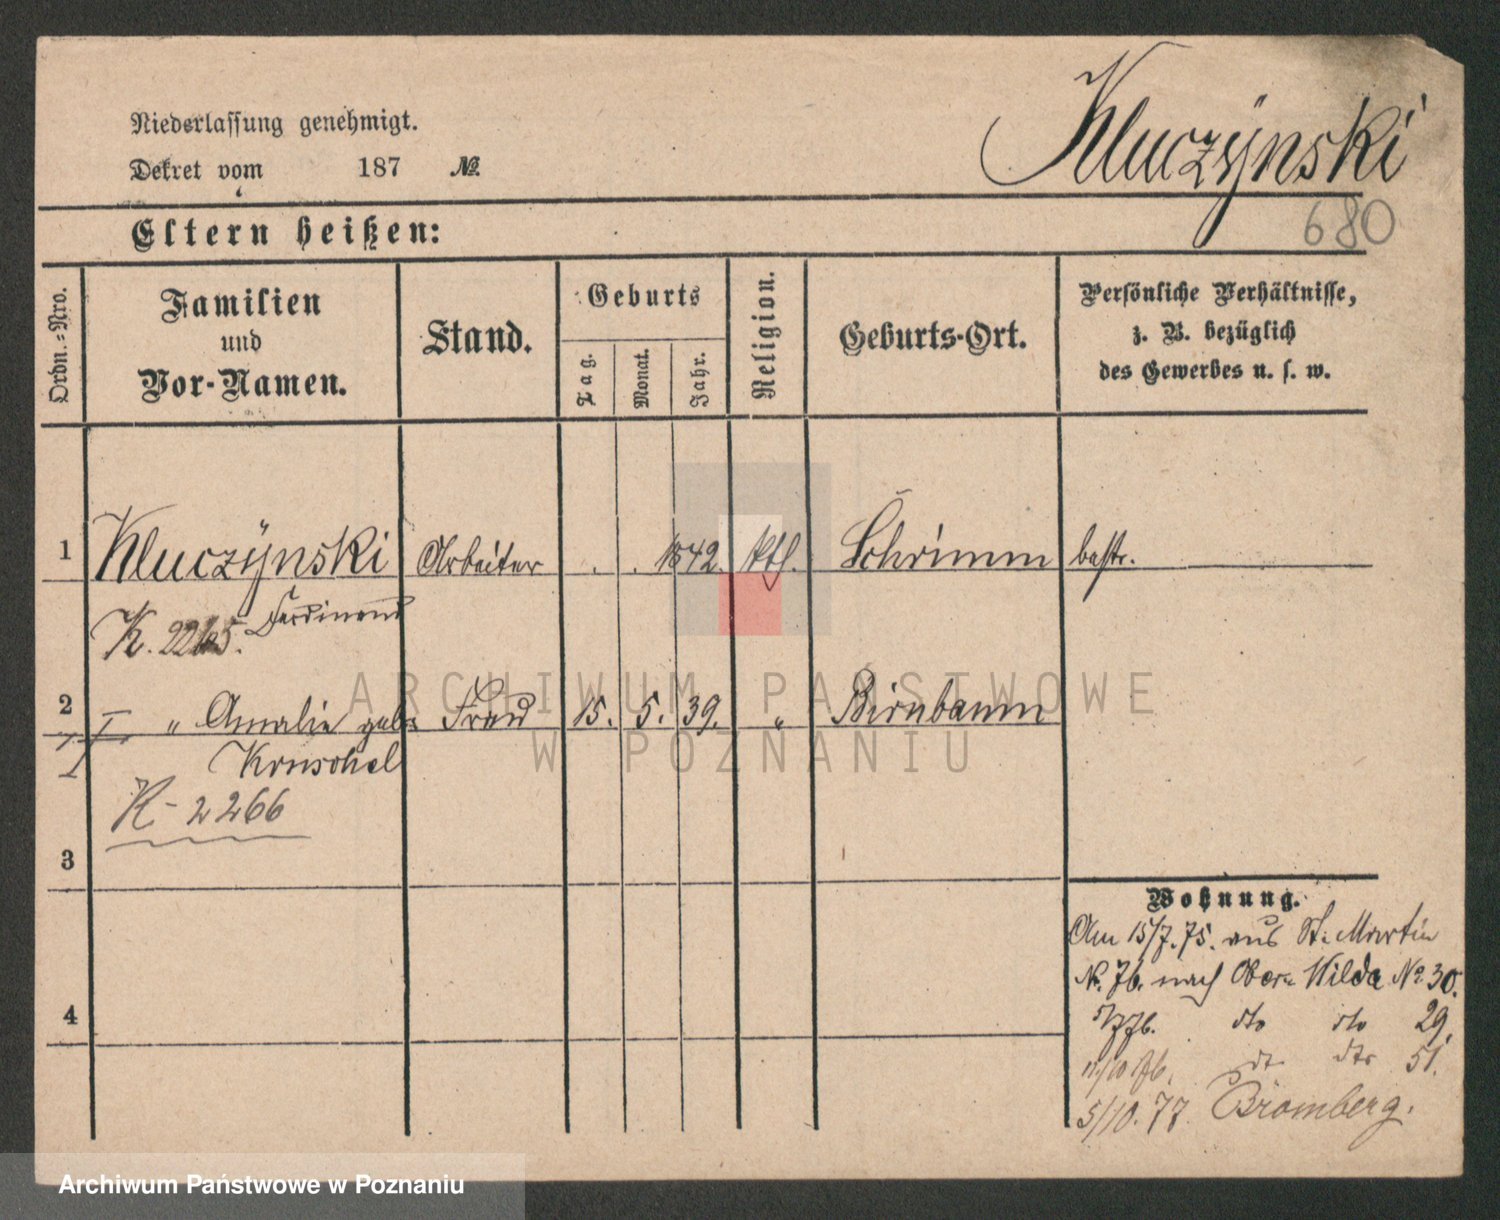 Niederlassung genehmigt.
Kluczÿnski
Dekret vom 187 №
680
Eltern heißen:
Ordn.-Nro.
Familien
und
Vor-Namen.
Stand.
Geburts
Tag.
Monat.
Jahr.
Religion.
Geburts-Ort.
Persönliche Verhältnisse,
z. B. bezüglich
des Gewerbes u. s. w.
1 Kluczÿnski Arbeiter . . 1842. ktl. Schrimm bestr.
Ferdinand
K. 2265.
2 I " Amalie geb. Frau 15. 5. 39. " Birnbaum
I Kruschel
K-2266
3
Wohnung.
Am 15/7.75. aus St. Martin
No. 76. nach Ober Wilda No 30.
4
5/7 76. dto dto 29.
11/10 76. dt dto 51.
5/10.77 Bromberg.
ARCHIWUM PAŃSTWOWE
W POZNANIU
Archiwum Państwowe w Poznaniu